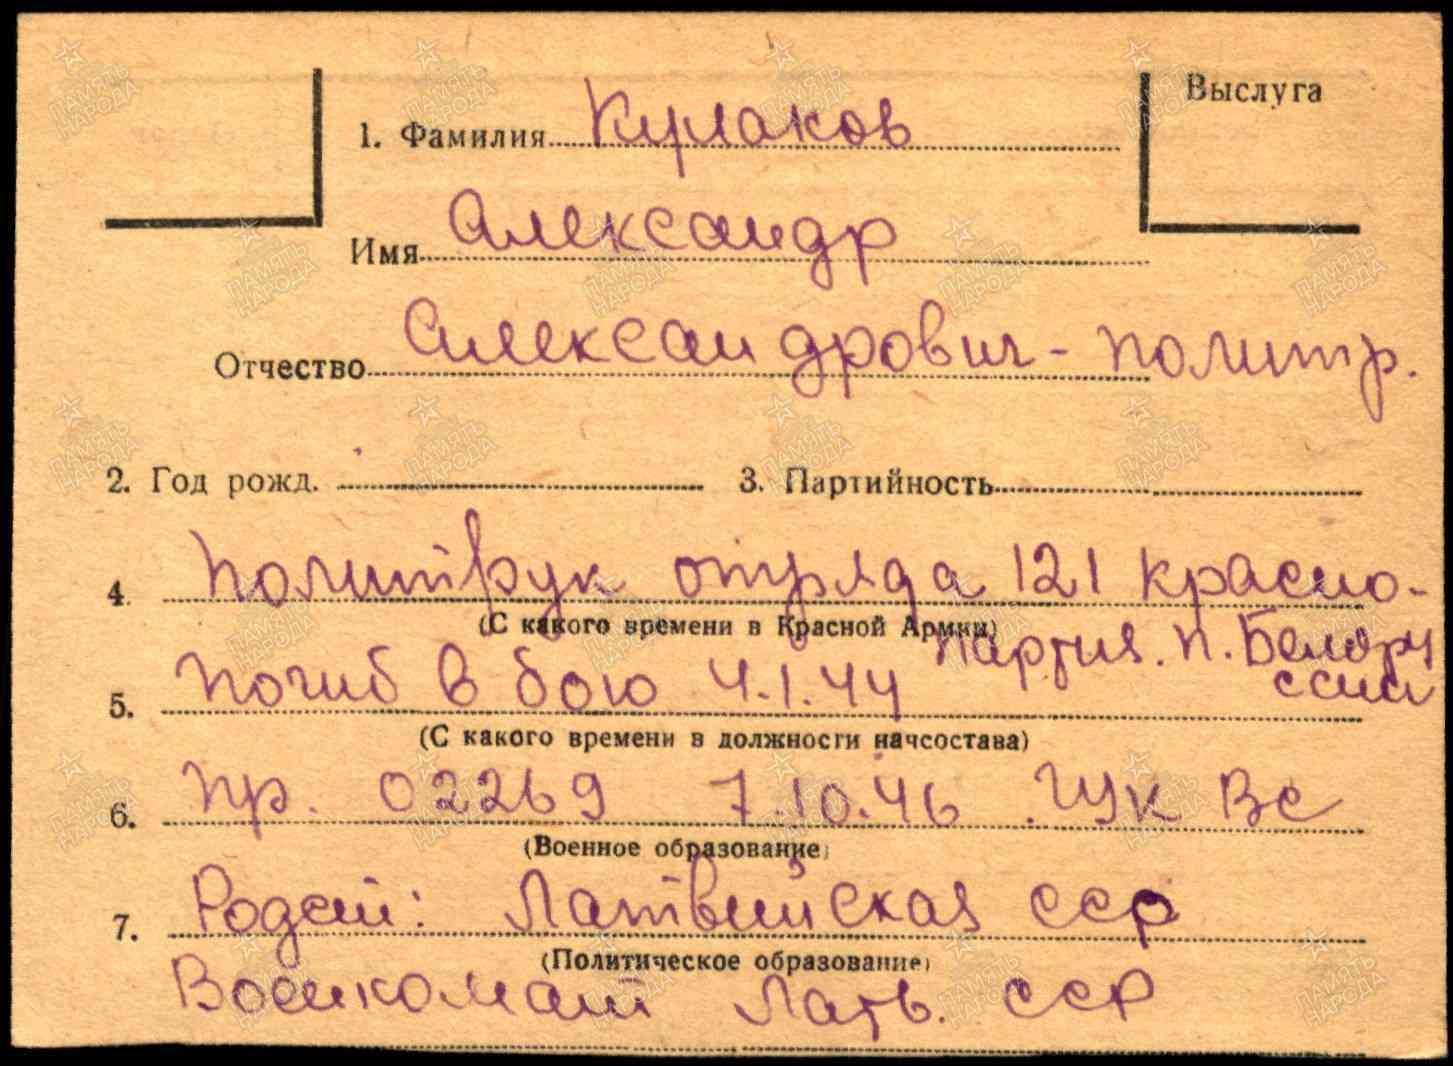 Выслуга
1. Фамилия Кулаков
Имя Александр
Отчество Александрович - политр.
2. Год рожд. 3. Партийность
4. политрук отряда 121 красно-
(С какого времени в Красной Армии)
партиз. п. Белору
ссии
5. погиб в бою 4.1.44
(С какого времени в должности начсостава)
6. пр. 02269 7.10.46 ГУК ВС
(Военное образование)
7. Родст: Латвийская ССР
(Политическое образование)
Военкомат Латв. ССР